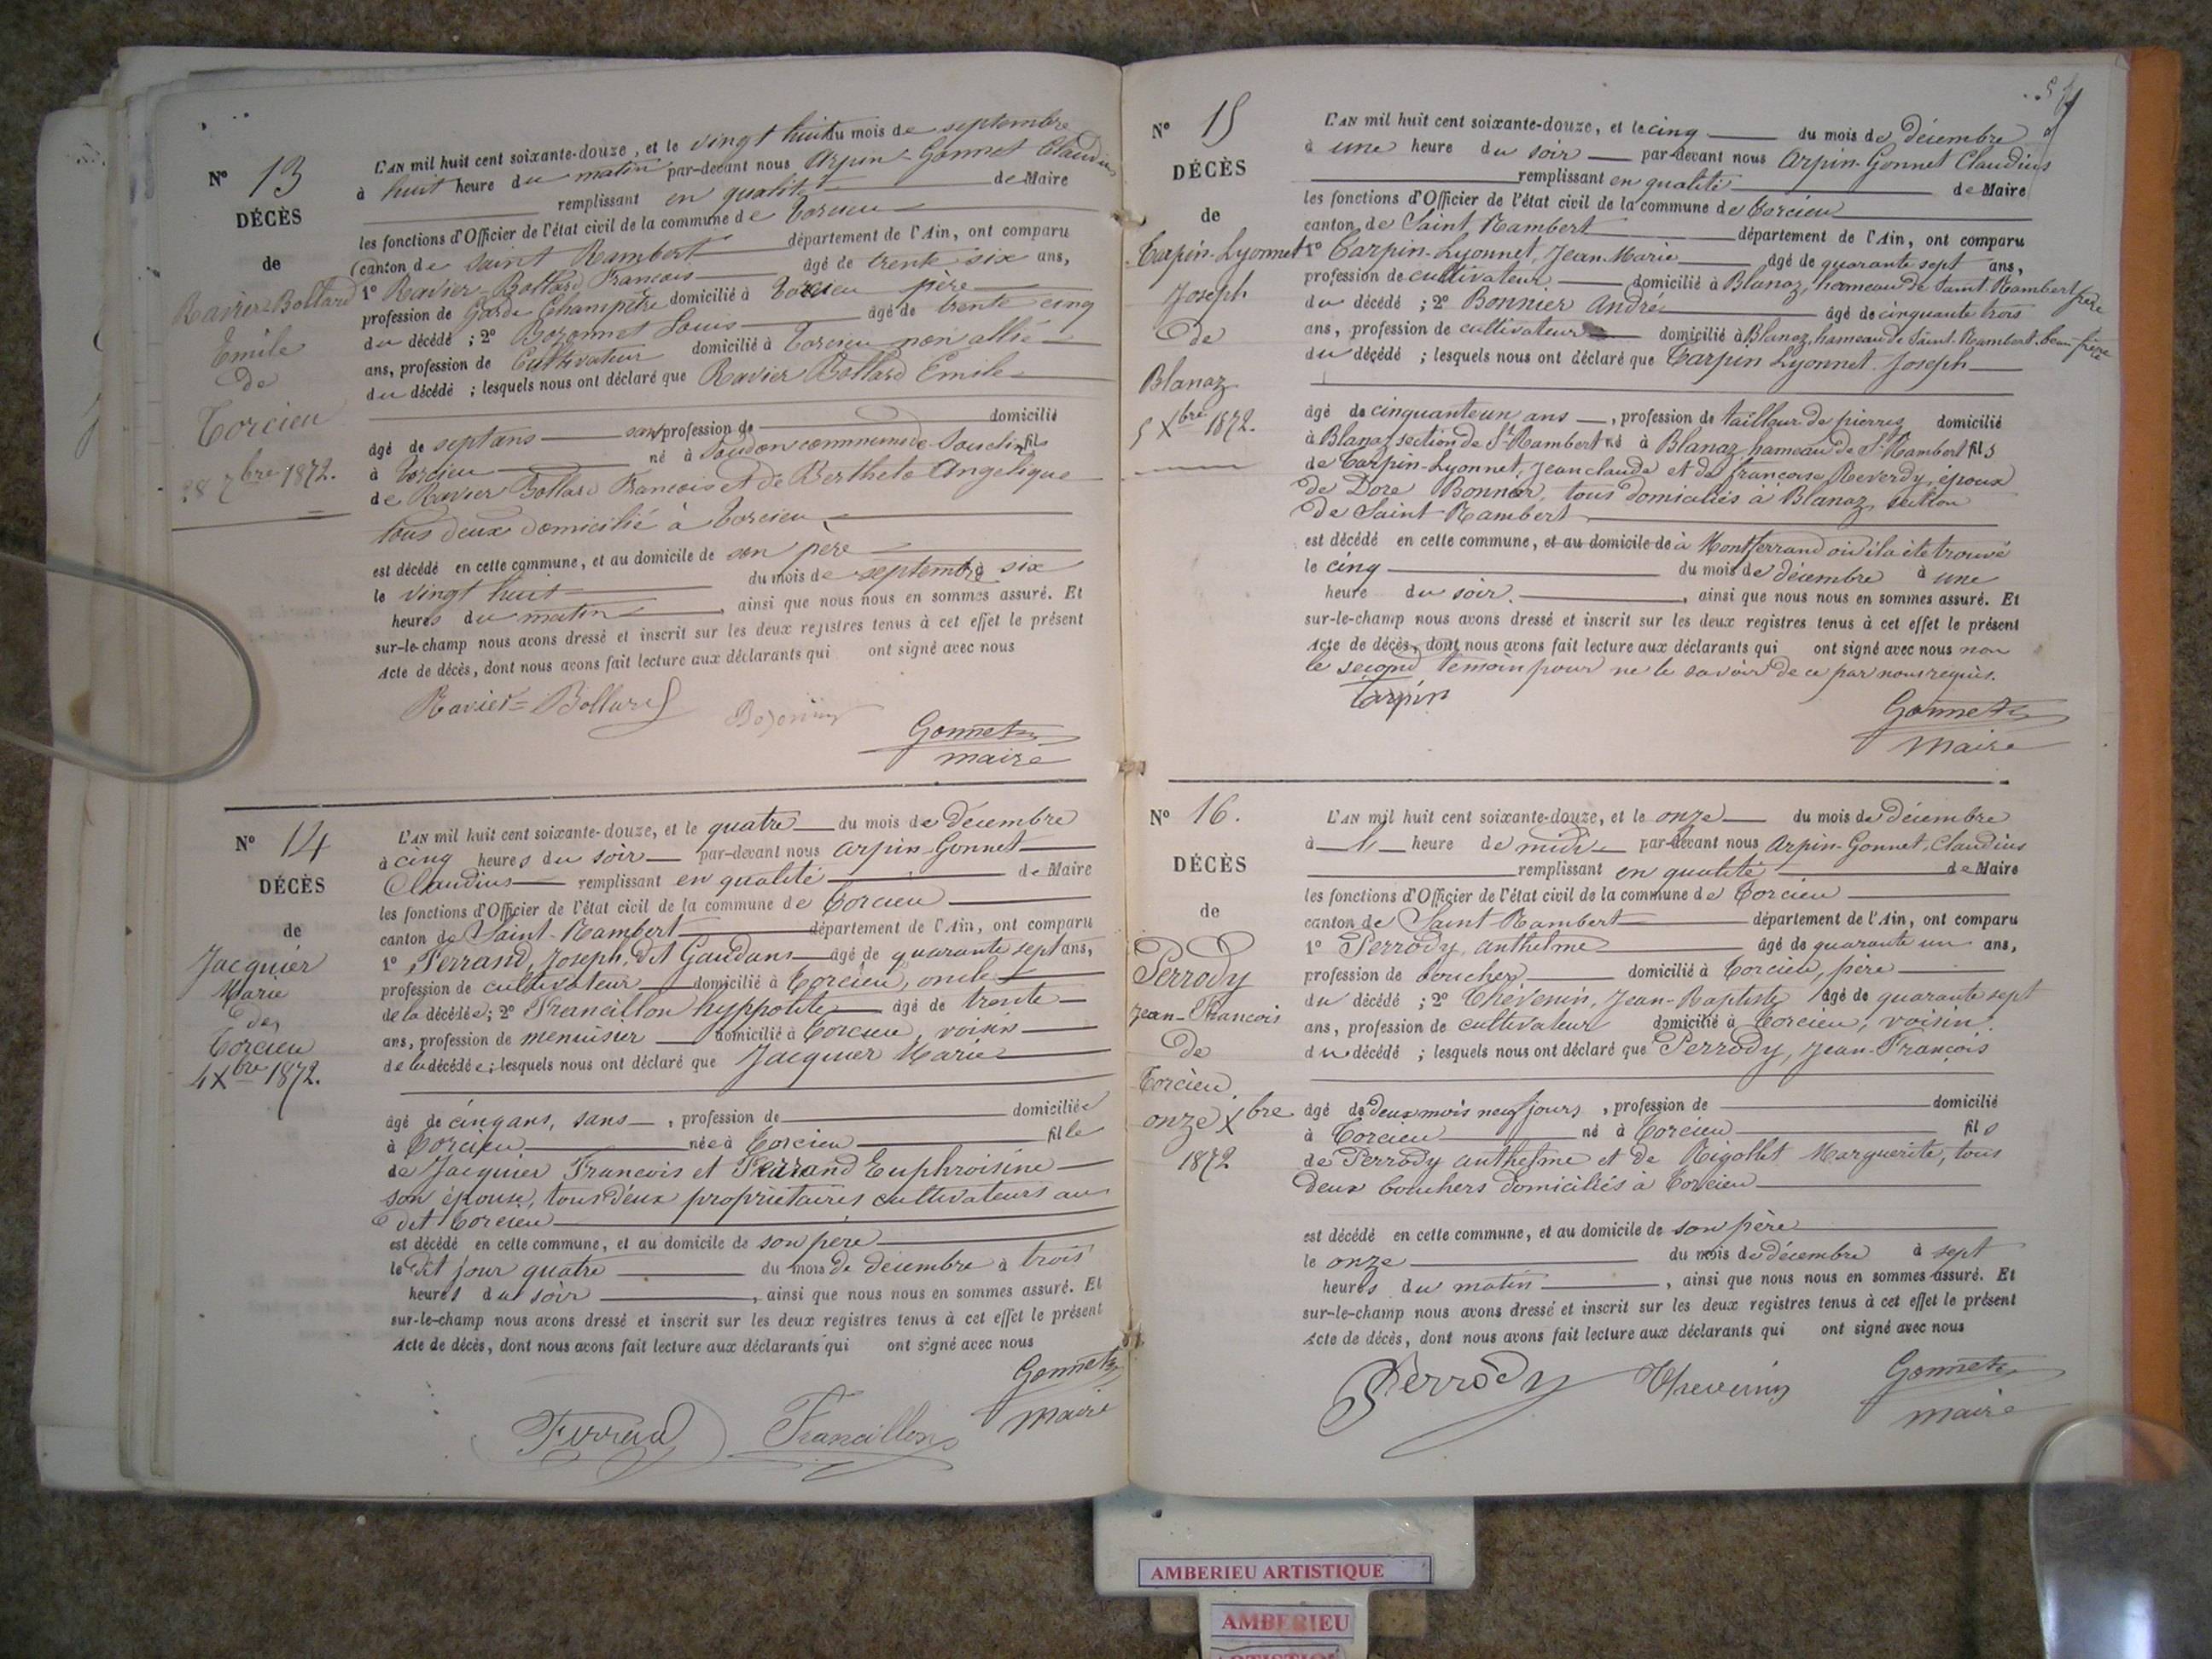 Nº 13
DÉCÈS
de
Ravier-Bollard
Emile
de
Torcieu
28 7bre 1872.
L'AN mil huit cent soixante-douze, et le vingt huit du mois de septembre
à huit heure du matin par-devant nous Arpin-Gonnet Claudius
remplissant en qualité de Maire
les fonctions d'Officier de l'état civil de la commune de Torcieu
canton de Saint Rambert département de l'Ain, ont comparu
1º Ravier-Bollard Francois âgé de trente six ans,
profession de Garde Champêtre domicilié à Torcieu père
du décédé ; 2º Bozonnet Louis âgé de trente cinq
ans, profession de Cultivateur domicilié à Torcieu non allié
du décédé ; lesquels nous ont déclaré que Ravier Bollard Emile
âgé de sept ans sans profession de domicilié
à Torcieu né à Soudon commune de Souclin fils
de Ravier Bollard Francois et de Berthelo Angelique
tous deux domicilié à Torcieu
est décédé en cette commune, et au domicile de son père
le vingt huit du mois de septembre à six
heures du matin, ainsi que nous nous en sommes assuré. Et
sur-le-champ nous avons dressé et inscrit sur les deux registres tenus à cet effet le présent
Acte de décès, dont nous avons fait lecture aux déclarants qui ont signé avec nous
Ravier=Bollard
Gonnet
maire
Nº 14
DÉCÈS
de
Jacquier
Marie
de
Torcieu
4 Xbre 1872.
L'AN mil huit cent soixante-douze, et le quatre du mois de décembre
à cinq heures du soir par-devant nous Arpin-Gonnet
Claudius remplissant en qualité de Maire
les fonctions d'Officier de l'état civil de la commune de Torcieu
canton de Saint-Rambert département de l'Ain, ont comparu
1º Ferrand, Joseph, dit Gaudans âgé de quarante sept ans,
profession de cultivateur domicilié à Torcieu, oncle
de la décédée; 2º Francillon hyppolite âgé de trente
ans, profession de menuisier domicilié à Torcieu, voisin
de la décédée; lesquels nous ont déclaré que Jacquier Marie
âgé de cinq ans, sans, profession de domiciliée
à Torcieu née à Torcieu fille
de Jacquier Francois et Ferrand Euphroisine
son épouse, tous deux propriétaires cultivateurs au
dit Torcieu
est décédé en cette commune, et au domicile de son père
le dit jour quatre du mois de décembre à trois
heures du soir, ainsi que nous nous en sommes assuré. Et
sur-le-champ nous avons dressé et inscrit sur les deux registres tenus à cet effet le présent
Acte de décès, dont nous avons fait lecture aux déclarants qui ont signé avec nous
Gonnet
maire
Ferrand Francillon
Nº 15
DÉCÈS
de
Tarpin-Lyonnet
Joseph
de
Blanaz
5 Xbre 1872.
L'AN mil huit cent soixante-douze, et le cinq du mois de décembre
à une heure du soir par-devant nous Arpin-Gonnet Claudius
remplissant en qualité de Maire
les fonctions d'Officier de l'état civil de la commune de Torcieu
canton de Saint Rambert département de l'Ain, ont comparu
1º Tarpin-Lyonnet, Jean-Marie âgé de quarante sept ans,
profession de cultivateur domicilié à Blanaz, hameau de Saint Rambert frère
du décédé ; 2º Bonnier André âgé de cinquante trois
ans, profession de cultivateur domicilié à Blanaz, hameau de Saint-Rambert, beau-frère
du décédé ; lesquels nous ont déclaré que Tarpin Lyonnet Joseph
âgé de cinquante un ans, profession de tailleur de pierres domicilié
à Blanaz section de St Rambert né à Blanaz hameau de St Rambert fils
de Tarpin-Lyonnet, Jean claude et de francoise Reverdy, époux
de Dore Bonnier, tous domiciliés à Blanaz, section
de Saint Rambert
est décédé en cette commune, et au domicile de à Montferrand où il a été trouvé
le cinq du mois de décembre à une
heure du soir, ainsi que nous nous en sommes assuré. Et
sur-le-champ nous avons dressé et inscrit sur les deux registres tenus à cet effet le présent
Acte de décès, dont nous avons fait lecture aux déclarants qui ont signé avec nous non
le second témoin pour ne le savoir de ce par nous requis.
Tarpin
Gonnet
maire
Nº 16.
DÉCÈS
de
Perrody
Jean-Francois
de
Torcieu
onze Xbre
1872
L'AN mil huit cent soixante-douze, et le onze du mois de décembre
à heure de midi par-devant nous Arpin-Gonnet, Claudius
remplissant en qualité de Maire
les fonctions d'Officier de l'état civil de la commune de Torcieu
canton de Saint-Rambert département de l'Ain, ont comparu
1º Perrody, anthelme âgé de quarante un ans,
profession de boucher domicilié à Torcieu, père
du décédé ; 2º Thévenin, Jean-Baptiste âgé de quarante sept
ans, profession de cultivateur domicilié à Torcieu, voisin
du décédé ; lesquels nous ont déclaré que Perrody, Jean-François
âgé de deux mois neuf jours, profession de domicilié
à Torcieu né à Torcieu fils
de Perrody anthelme et de Rigollet Marguerite, tous
deux bouchers domiciliés à Torcieu
est décédé en cette commune, et au domicile de son père
le onze du mois de décembre à sept
heures du matin, ainsi que nous nous en sommes assuré. Et
sur-le-champ nous avons dressé et inscrit sur les deux registres tenus à cet effet le présent
Acte de décès, dont nous avons fait lecture aux déclarants qui ont signé avec nous
Perrody Thevenin Gonnet
maire
AMBERIEU ARTISTIQUE
AMBERIEU
ARTISTIQUE